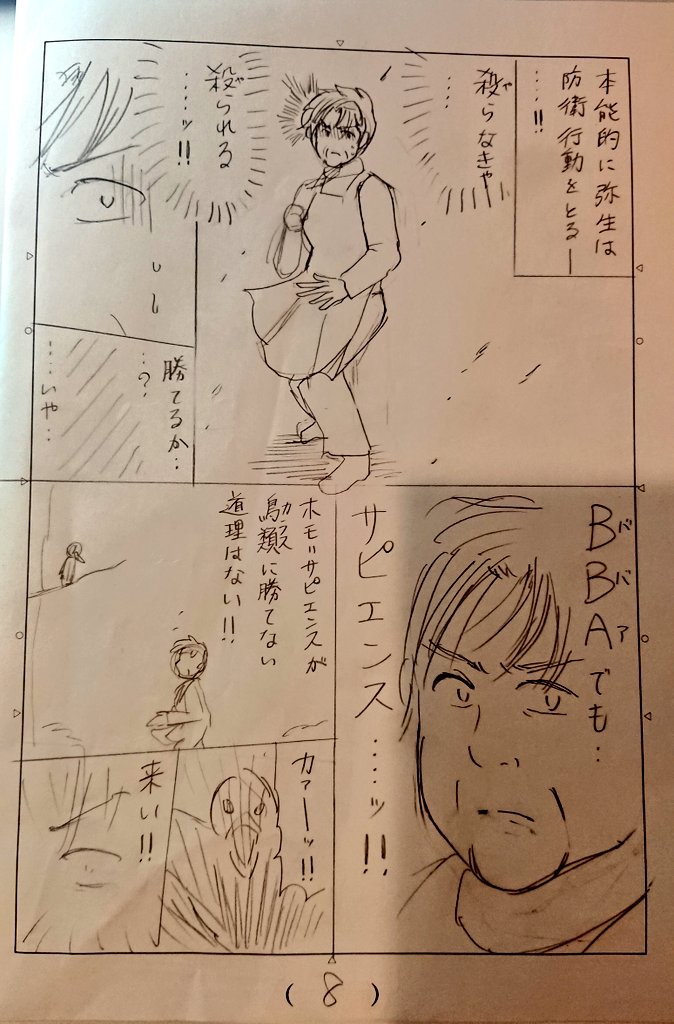 本能的に弥生は
防衛行動をとるー
…!!
殺らなきゃ
…
殺られる
…ッ!!
勝てるか…
…?
…いや…
BBAでも…
ババア
サピエンス……ッ!!
ホモ=サピエンスが
鳥類に勝てない
カラス
道理はない!!
カァーッ!!
来い!!
(8)